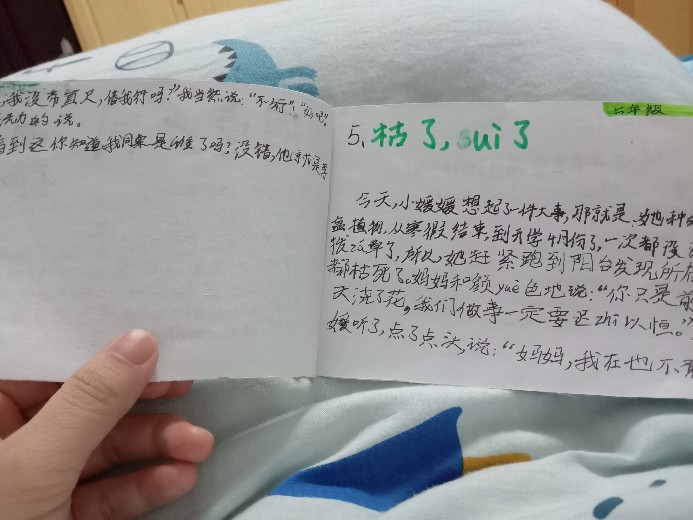 ，我没带直尺，借我行吗？"我当然说："不行""好吧"。
无力的说。
看到这你知道我同桌是谁了吗？没错，他就是
年级
5、枯了，sui了
今天，小媛媛想起了一件大事，那就是，她种的
盆植物，从寒假结束，到开学4月份了，一次都没
了，所以她赶紧跑到阳台发现所有
都枯死了。妈妈和颜yuè色地说："你只是前
天浇了花，我们做事一定要 zhī以恒。"
媛听了，点了点头，说："妈妈，我在也不